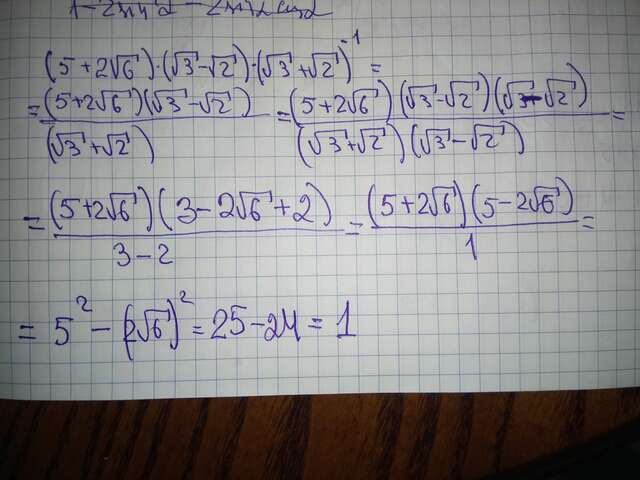 (5+2√6)·(√3-√2)·(√3+√2)⁻¹ =
= (5+2√6)(√3-√2) / (√3+√2) = (5+2√6)(√3-√2)(√3-√2) / (√3+√2)(√3-√2) =
= (5+2√6)(3-2√6+2) / 3-2 = (5+2√6)(5-2√6) / 1 =
= 5² - (2√6)² = 25-24 = 1